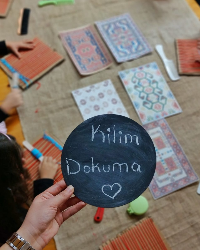 Kilim
Dokuma